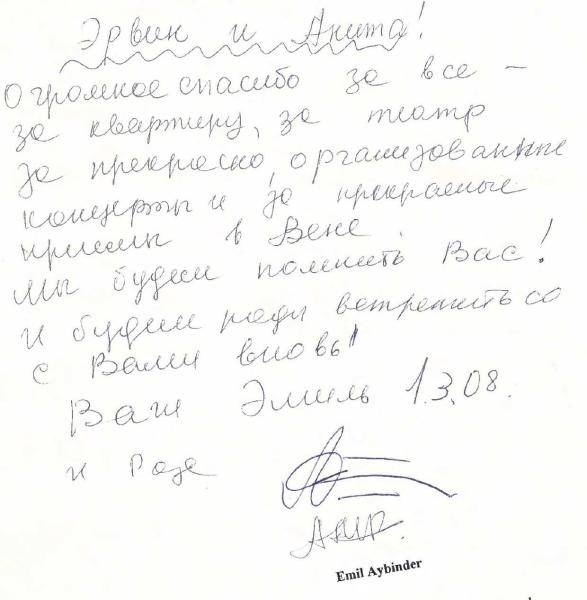 Эрвин и Анита!
Огромное спасибо за все –
за квартиру, за театр
за прекрасно организованные
концерты и за прекрасные
приемы в Вене.
Мы будем помнить Вас!
и будем рады встретиться
с Вами вновь!
Ваш Эмиль 1.3.08.
и
Emil Aybinder